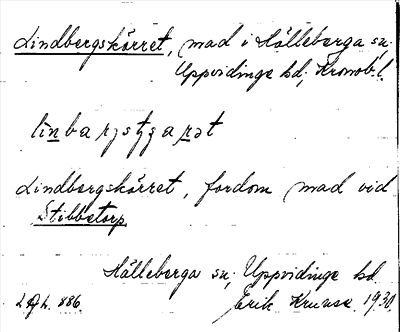 Lindbergskärret, mad i Hälleberga sn.
Uppvidinge hd; Kronob. l.
Lindbergskärret, fordom mad vid
Stibbetorp
Hälleberga sn; Uppvidinge hd
Erik Kruuse 1930.